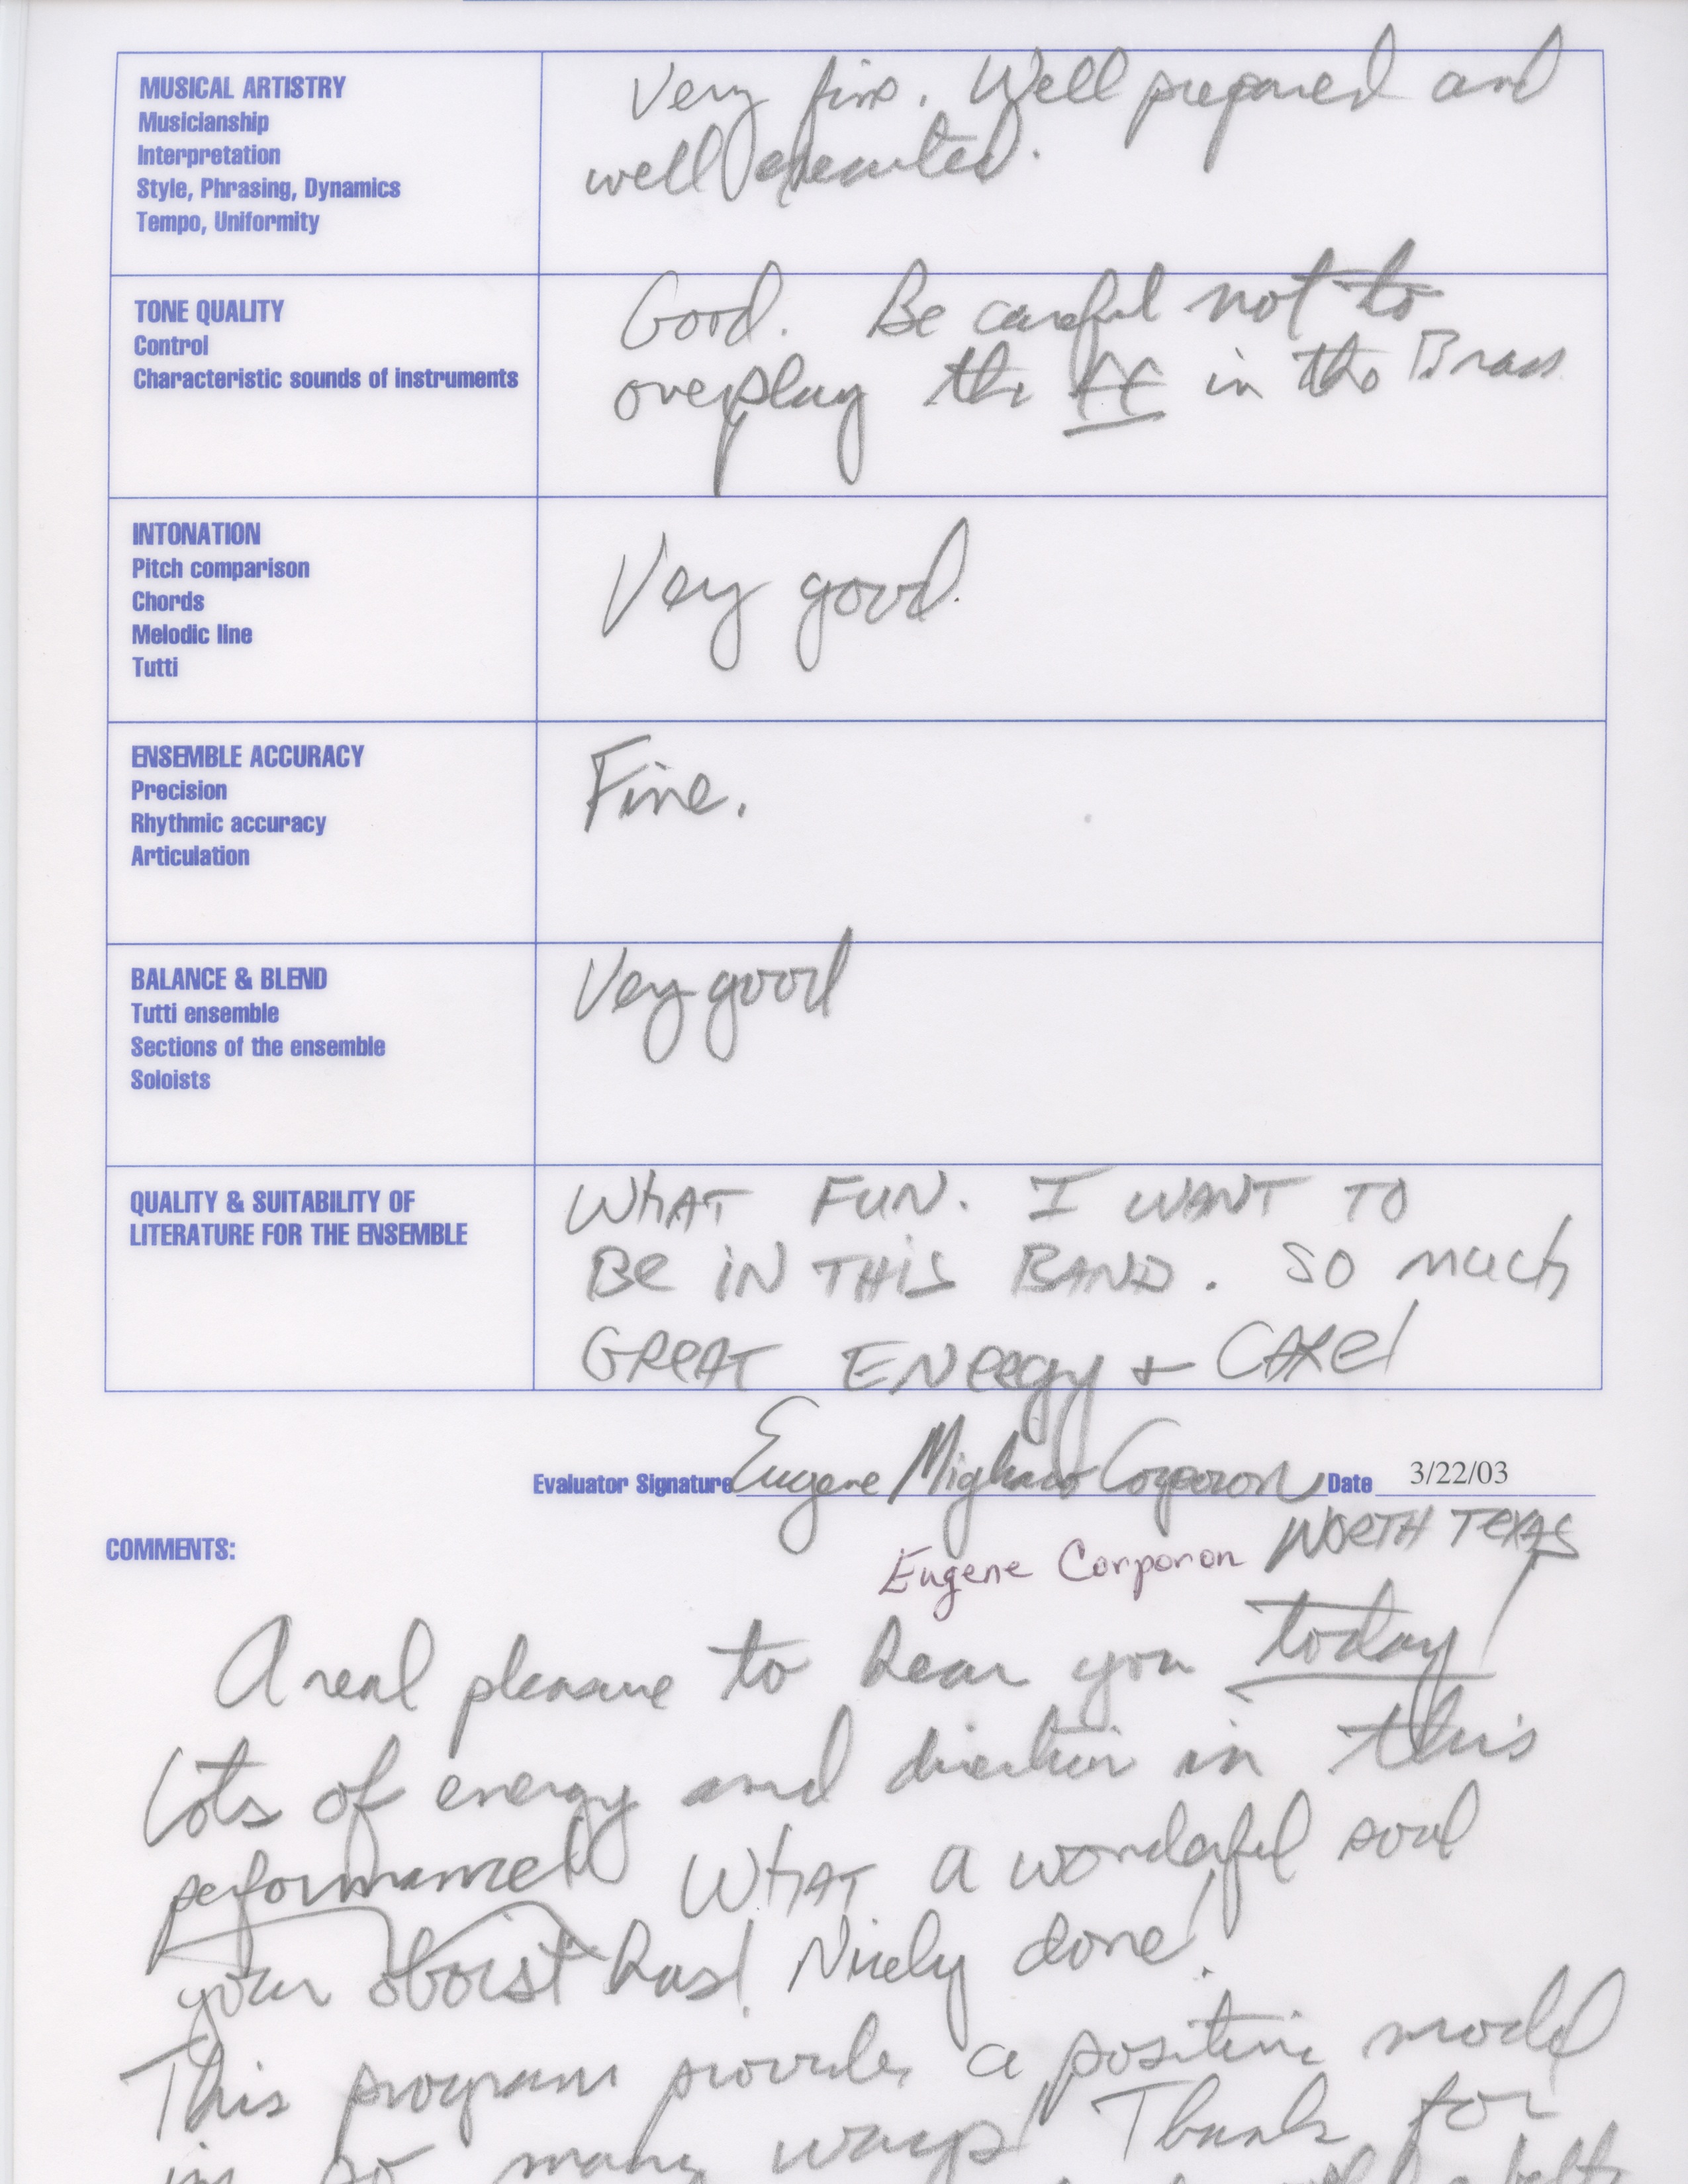 MUSICAL ARTISTRY
Musicianship
Interpretation
Style, Phrasing, Dynamics
Tempo, Uniformity
Very fine. Well prepared and
well executed.
TONE QUALITY
Control
Characteristic sounds of instruments
Good. Be careful not to
overplay the ff in the Brass
INTONATION
Pitch comparison
Chords
Melodic line
Tutti
Very good.
ENSEMBLE ACCURACY
Precision
Rhythmic accuracy
Articulation
Fine.
BALANCE & BLEND
Tutti ensemble
Sections of the ensemble
Soloists
Very good
QUALITY & SUITABILITY OF
LITERATURE FOR THE ENSEMBLE
WhAT FUN. I WANT TO
Be iN THiS BAND. SO much
GReAT ENeRgy + CARe!
Evaluator Signature Eugene Migliaro Corporon Date 3/22/03
NORTH TeXAS
COMMENTS:
Eugene Corporon
A real pleasure to hear you today!
Lots of energy and direction in this
performance! WhAT a wonderful soul
your oboist has! Nicely done!
This program provides a positive model
in so many ways! Thank for